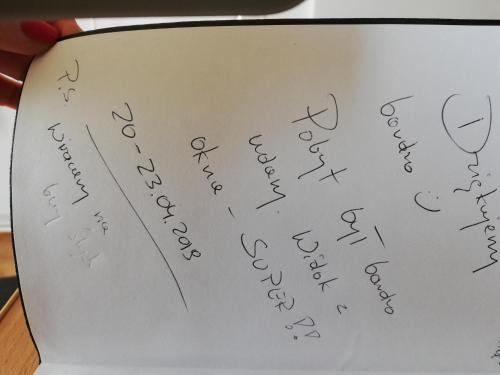 Dziękujemy
bardzo :)
Pobyt był bardzo
udany. Widok z
okna - SUPER!!
20-23.04.2019
P.S. Wracamy na